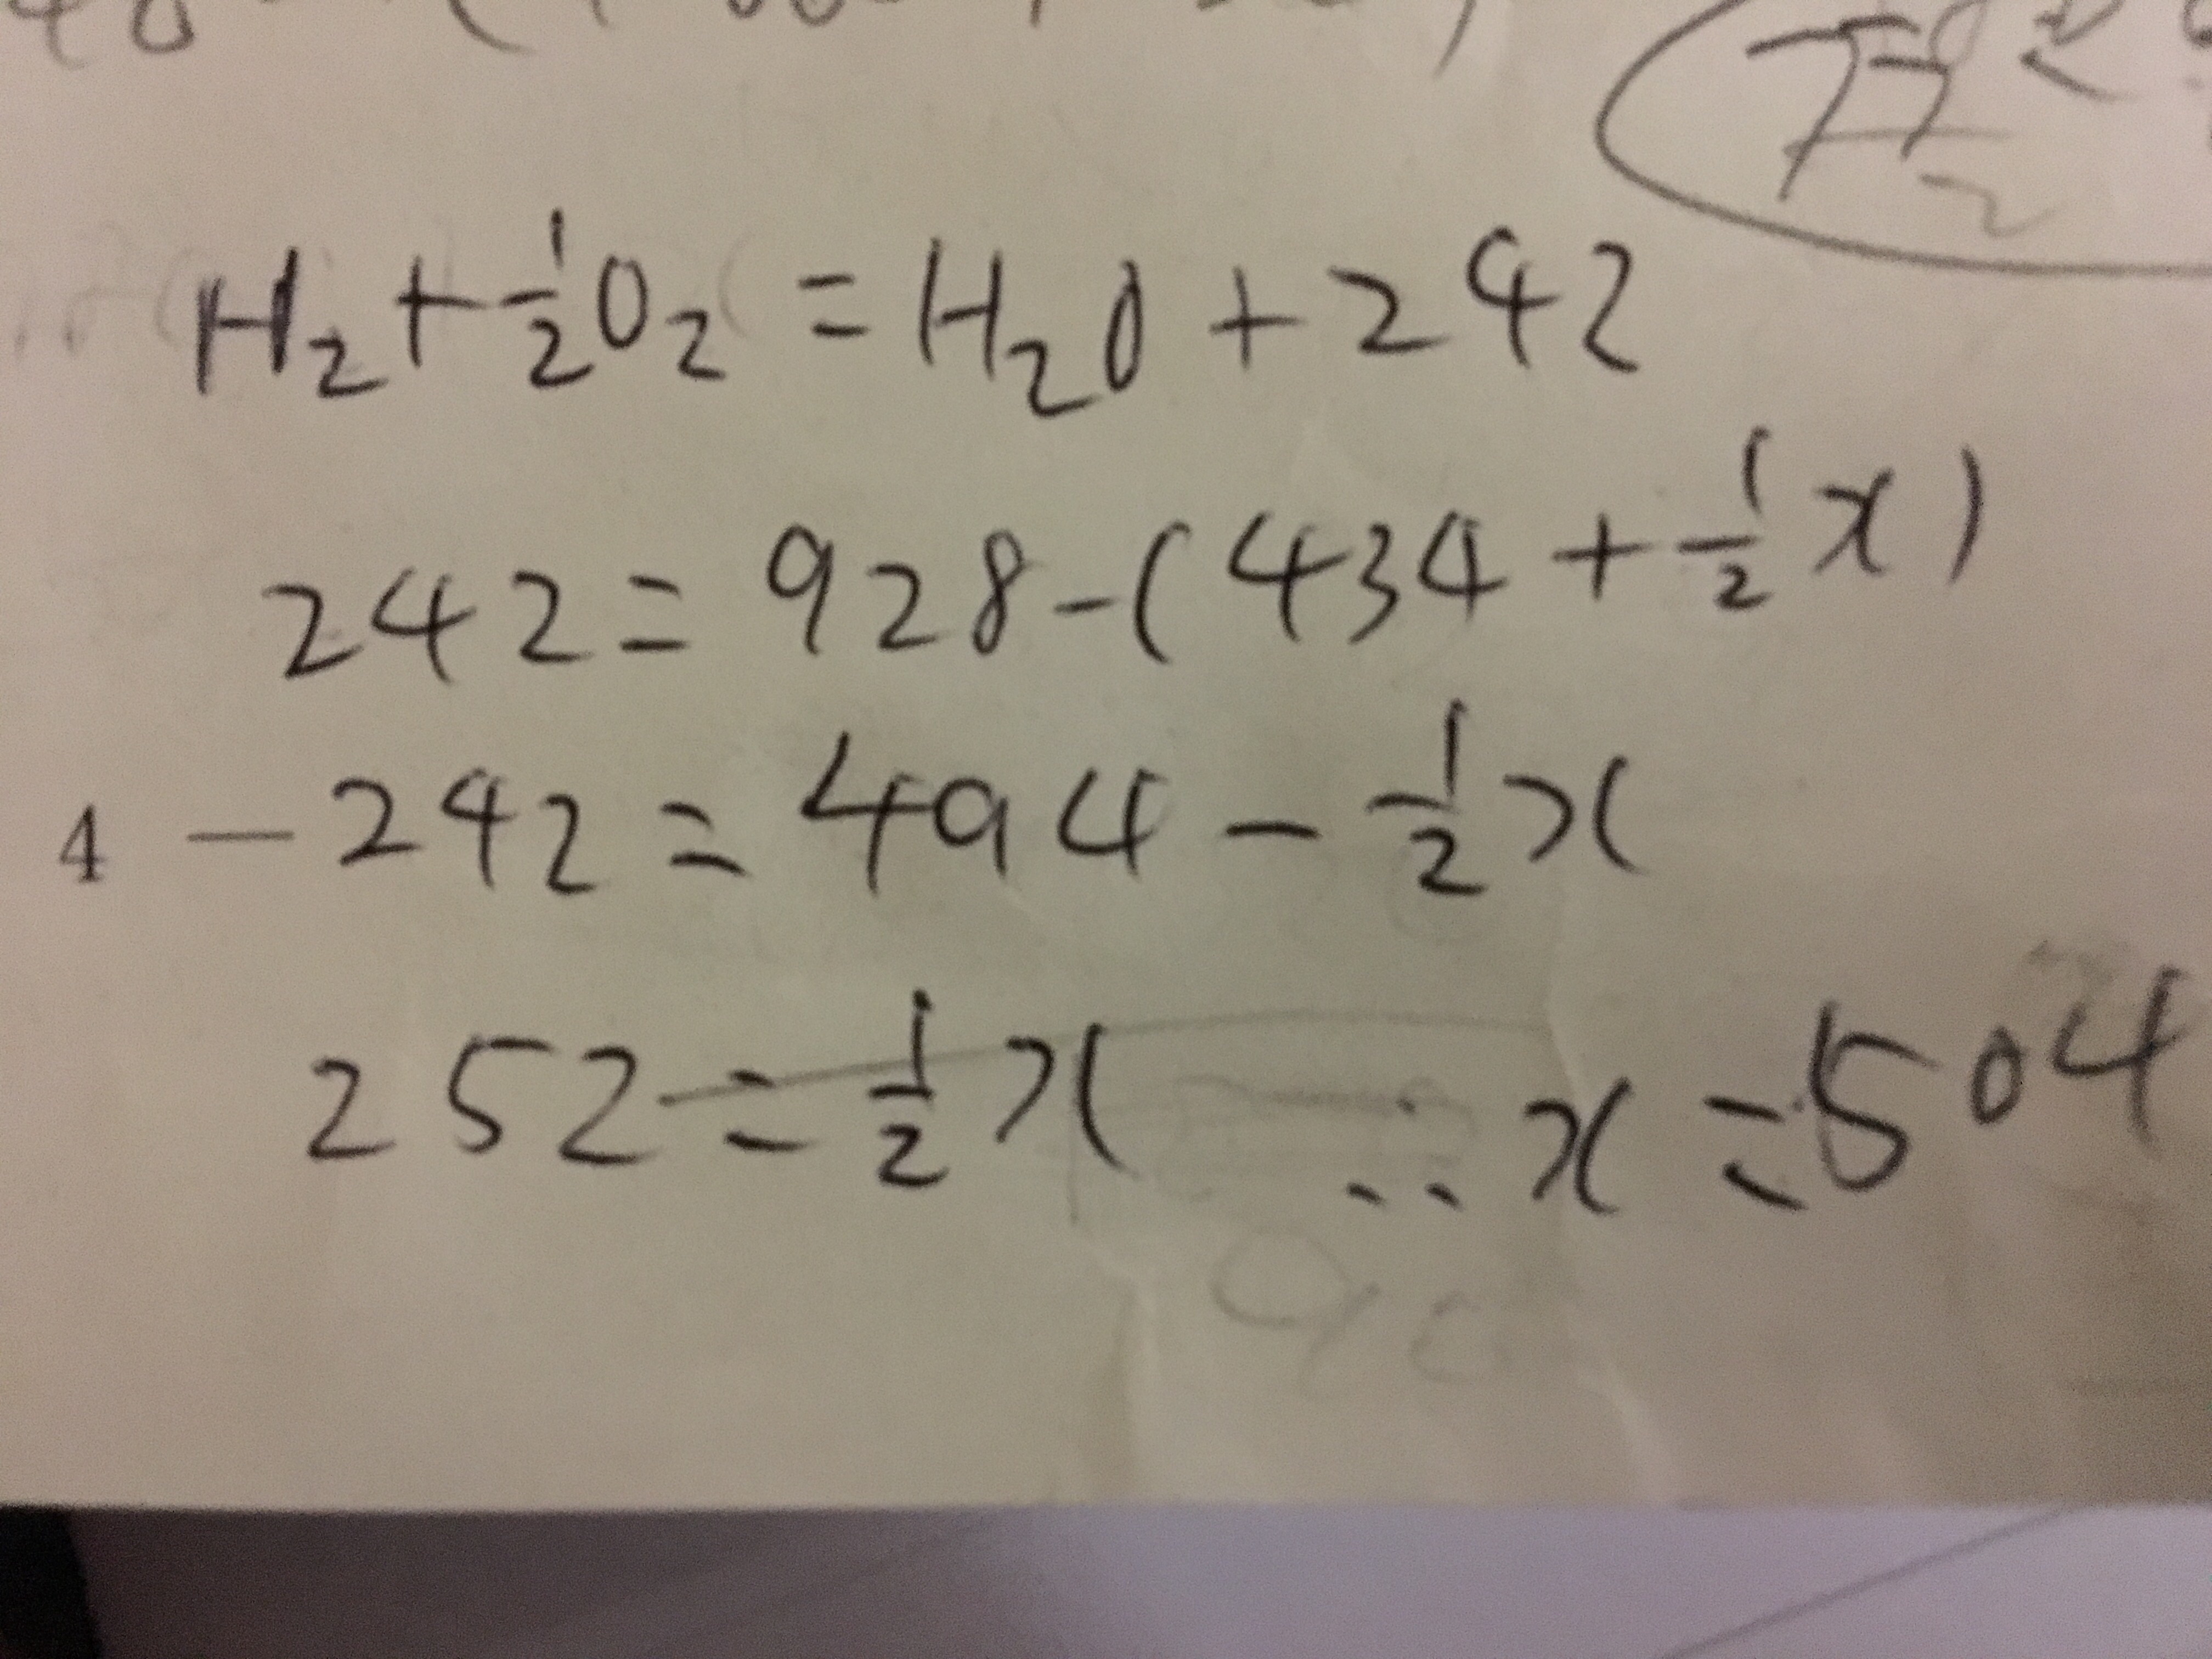 H₂ + 1/2 O₂ = H₂O + 242
242 = 928 - (434 + 1/2 x)
4 — 242 = 494 - 1/2 x
252 = 1/2 x ∴ x = 504